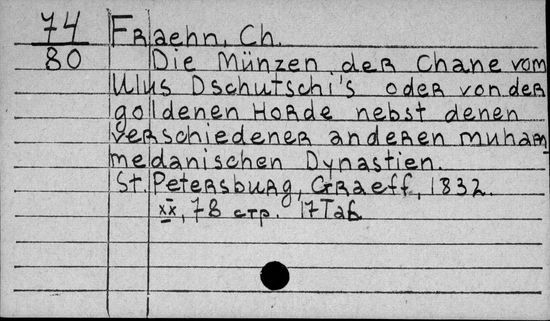 74
80
Fraehn, Ch.
Die Münzen der Chane vom
Ulus Dschutschi's oder von der
goldenen Horde nebst denen
verschiedener anderen muham-
medanischen Dynastien.
St. Petersburg, Graeff, 1832.
XX, 78 стр. 17 Таб.